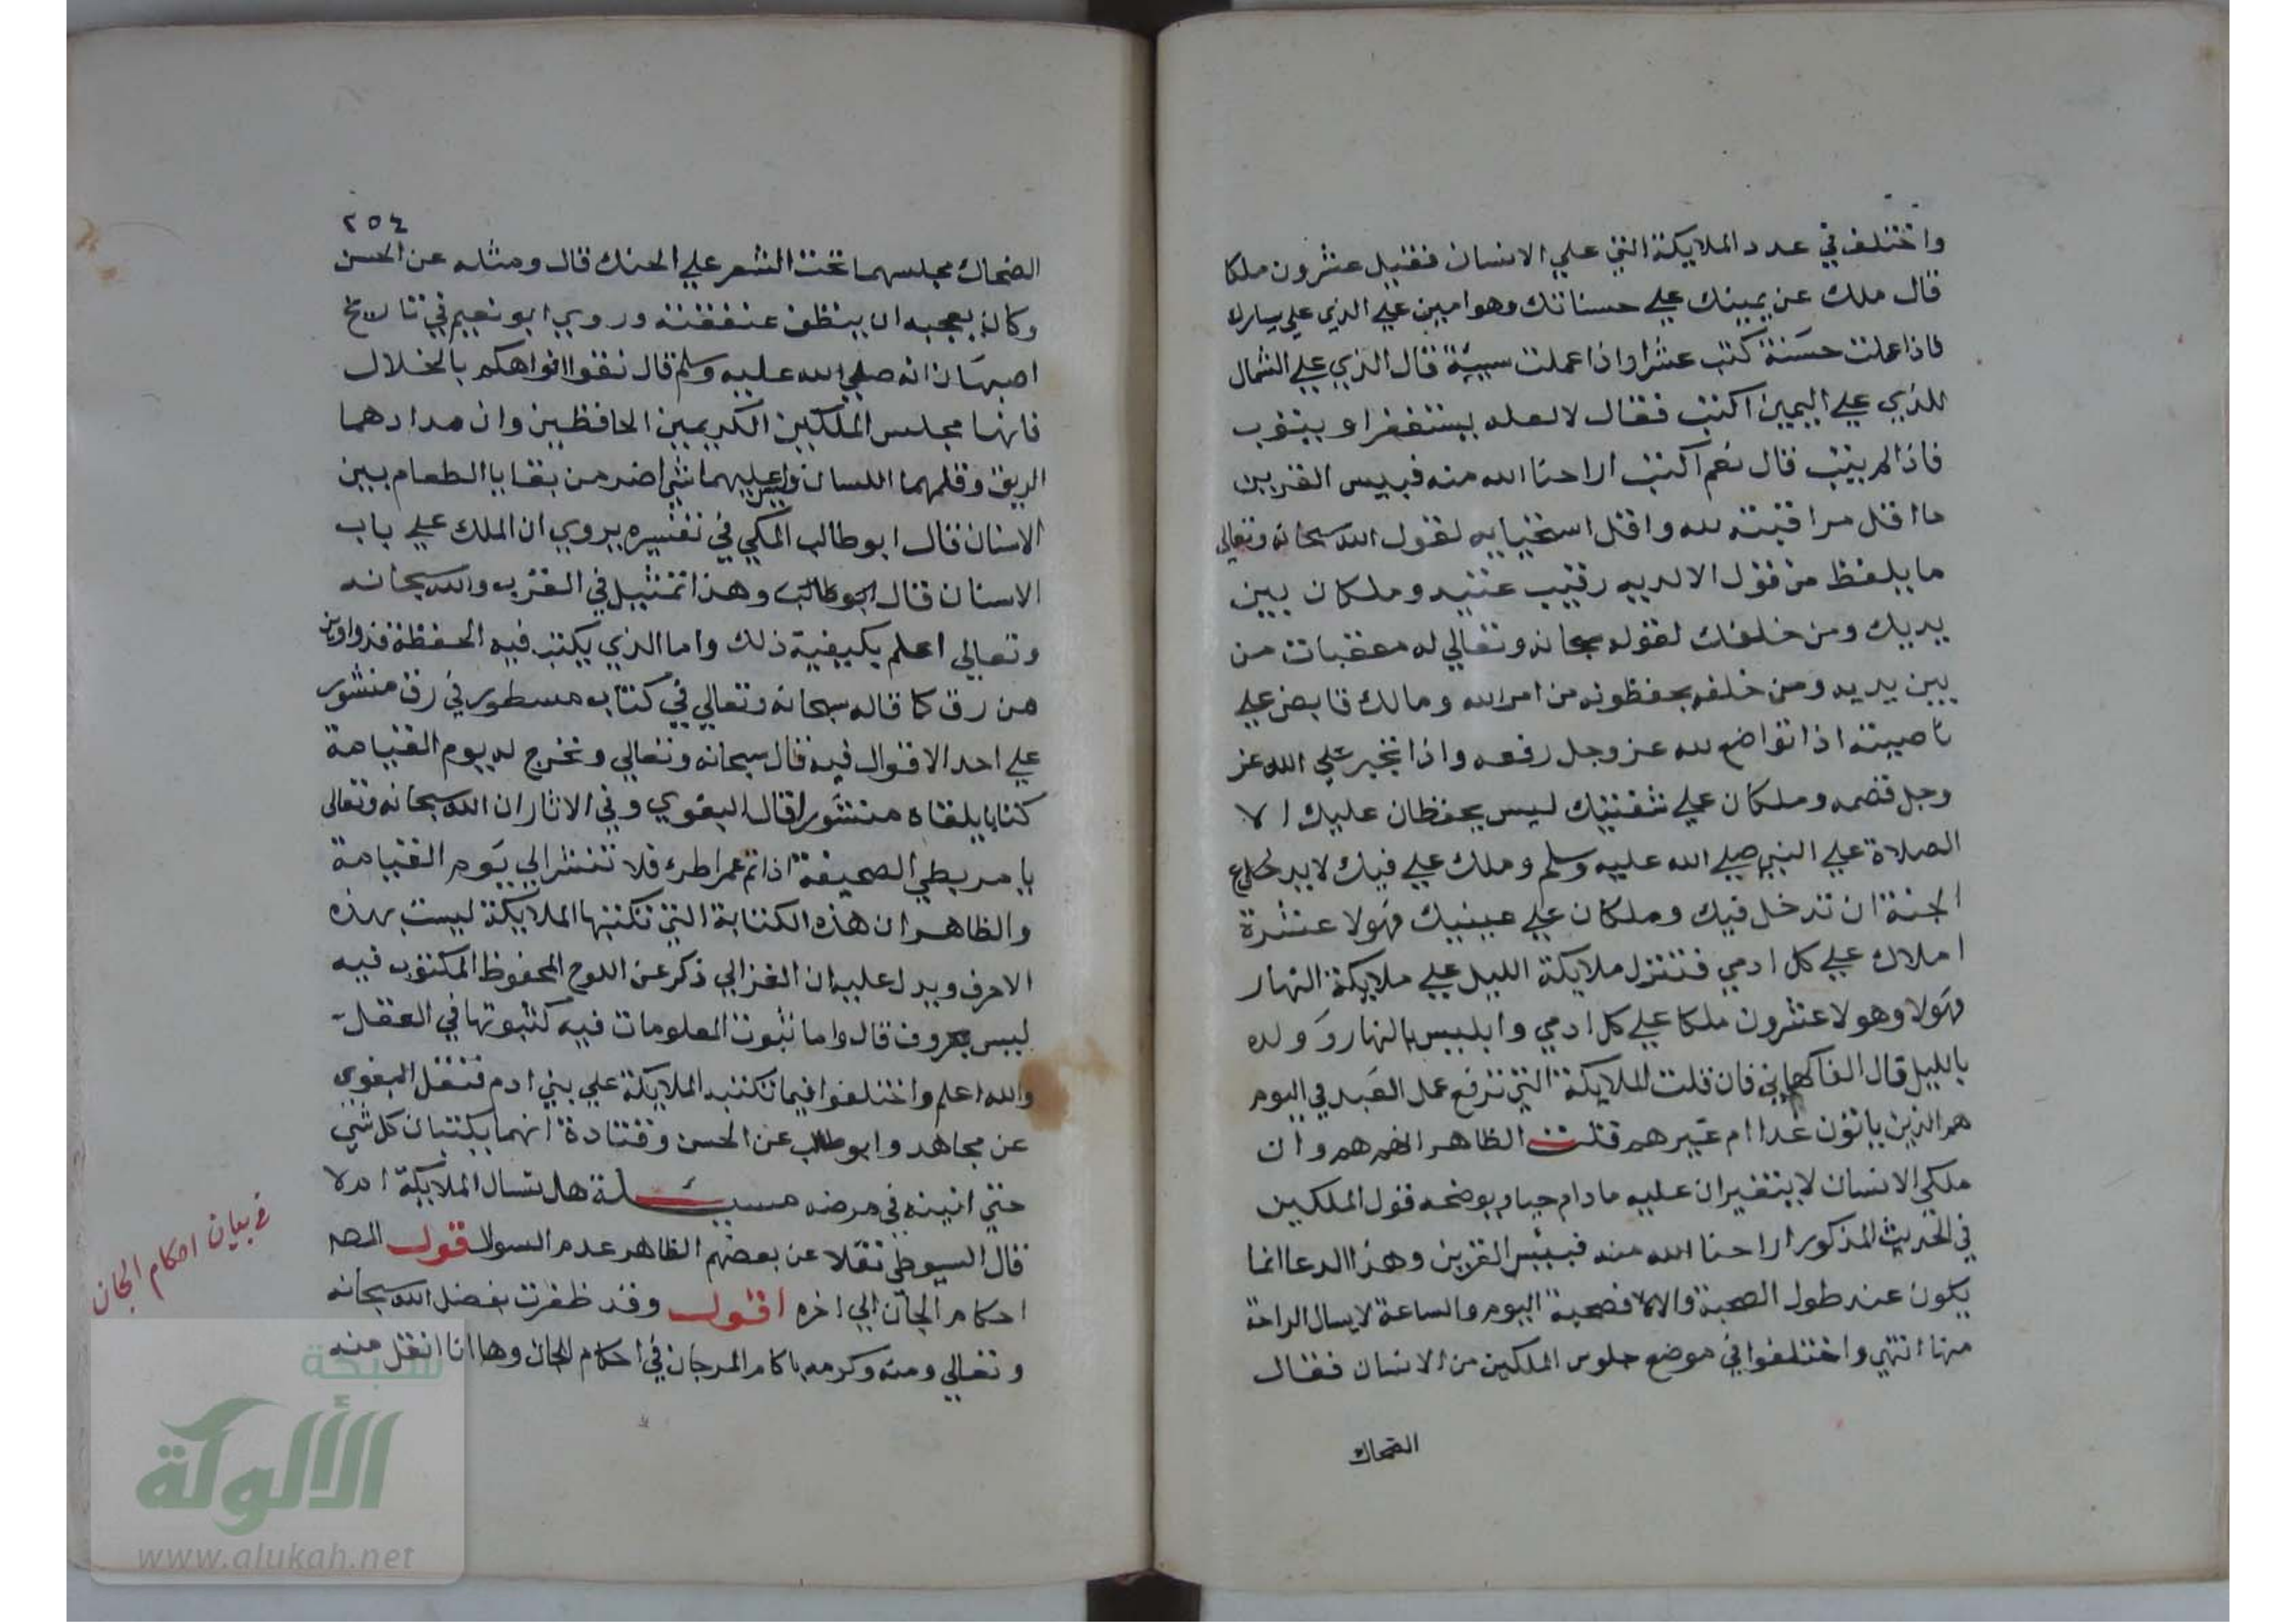 واختلف في عدد الملايكة التي علي الانسان فقيل عشرون ملكا
قال ملك عن يمينك علي حسناتك وهو امين علي الذي علي يسارك
فاذا عملت حسنة كتب عشرا واذا عملت سيية قال الذي علي الشمال
للذي علي اليمين اكتب فقال لا لعله يستغفر او يتوب
فاذا لم يتب قال نعم اكتب اراحنا الله منه فبيس القرين
ما اقل مراقبته لله واقل استحيايه لقول الله سبحانه وتعالي
ما يلفظ من قول الا لديه رقيب عتيد وملكان بين
يديك ومن خلفك لقوله سبحانه وتعالي له معقبات من
بين يديه ومن خلفه يحفظونه من امر الله ومالك قابض علي
ناصيته اذا تواضع لله عز وجل رفعه واذا تجبر علي الله عز
وجل قصمه وملكان علي شفتيك ليس يحفظان عليك الا
الصلاة علي النبي صلي الله عليه وسلم وملك علي فيك لا يدع
الجنة ان تدخل فيك وملكان علي عينيك فهولا عشرة
املاك علي كل ادمي فتنزل ملايكة الليل علي ملايكة النهار
فهولا وهولا عشرون ملكا علي كل ادمي وابليس بالنهار وولده
بالليل قال الفاكهاني فان قلت الملايكة التي ترفع عمل العبد في اليوم
هم الذين ياتون غدا ام غيرهم قلت الظاهر انهم هم وان
ملكي الانسان لا يتغيران عليه ما دام حيا ويوضحه قول الملكين
في الحديث المذكور اراحنا الله منه فبيئس القرين وهذا الدعا انما
يكون عند طول الصحبة والا فصحبة اليوم والساعة لا يسال الراحة
منها انتهي واختلفوا في موضع جلوس الملكين من الانسان فقال
الضحاك
٢٥٤
الضحاك مجلسهما تحت الشعر علي الحنك قال ومثله عن الحسن
وكان يعجبه ان ينظف عنفقته وروي ابو نعيم في تاريخ
اصبهان انه صلي الله عليه وسلم قال نقوا افواهكم بالخلال
فانها مجلس الملكين الكريمين الحافظين وان مدادهما
الريق وقلمهما اللسان وليس عليهما شي اضر من بقايا الطعام بين
الاسنان قال ابو طالب المكي في تفسيره يروي ان الملك علي باب
الاسنان قال ابو طالب وهذا تمثيل في القرب والله سبحانه
وتعالي اعلم بكيفية ذلك واما الذي يكتب فيه الحفظة فدواوين
من رق كما قاله سبحانه وتعالي في كتاب مسطور في رق منشور
علي احد الاقوال فيه قال سبحانه وتعالي ونخرج له يوم القيامة
كتابا يلقاه منشورا قال البغوي وفي الاثار ان الله سبحانه وتعالي
يامر بطي الصحيفة اذا تم عمر فلا تنشر الي يوم القيامة
والظاهر ان هذه الكتابة التي تكتبها الملايكة ليست بهذه
الاحرف ويدل عليه ان الغزالي ذكر عن اللوح المحفوظ المكتوب فيه
ليس بحروف قال واما ثبوت المعلومات فيه كثبوتها في العقل
والله اعلم واختلفوا فيما تكتبه الملايكة علي بني ادم فنقل البغوي
عن مجاهد وابو طالب عن الحسن وقتادة انهما يكتبان كل شي
حتي انينه في مرضه مسيلة هل تسال الملايكة ام لا
قال السيوطي نقلا عن بعضهم الظاهر عدم السوال قوله المصـ
احكام الجان الي اخره اقول وقد ظفرت بفضل الله سبحانه
وتعالي ومنه وكرمه باكام المرجان في احكام الجان وها انا انقل منه
في بيان احكام الجان
شبكة
الألوكة
www.alukah.net